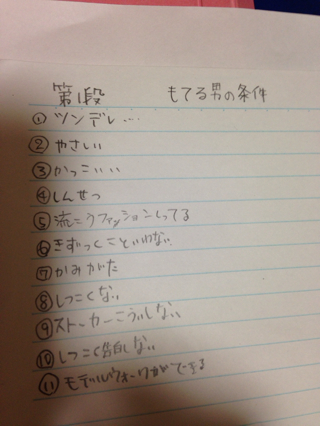 第1段 もてる男の条件
①ツンデレ…
②やさしい
③かっこいい
④しんせつ
⑤流こうファッションしってる
⑥きずつくこといわない
⑦かみがた
⑧しつこくない
⑨ストーカーこういしない
⑩しつこく告白しない
⑪モデルウォークができる